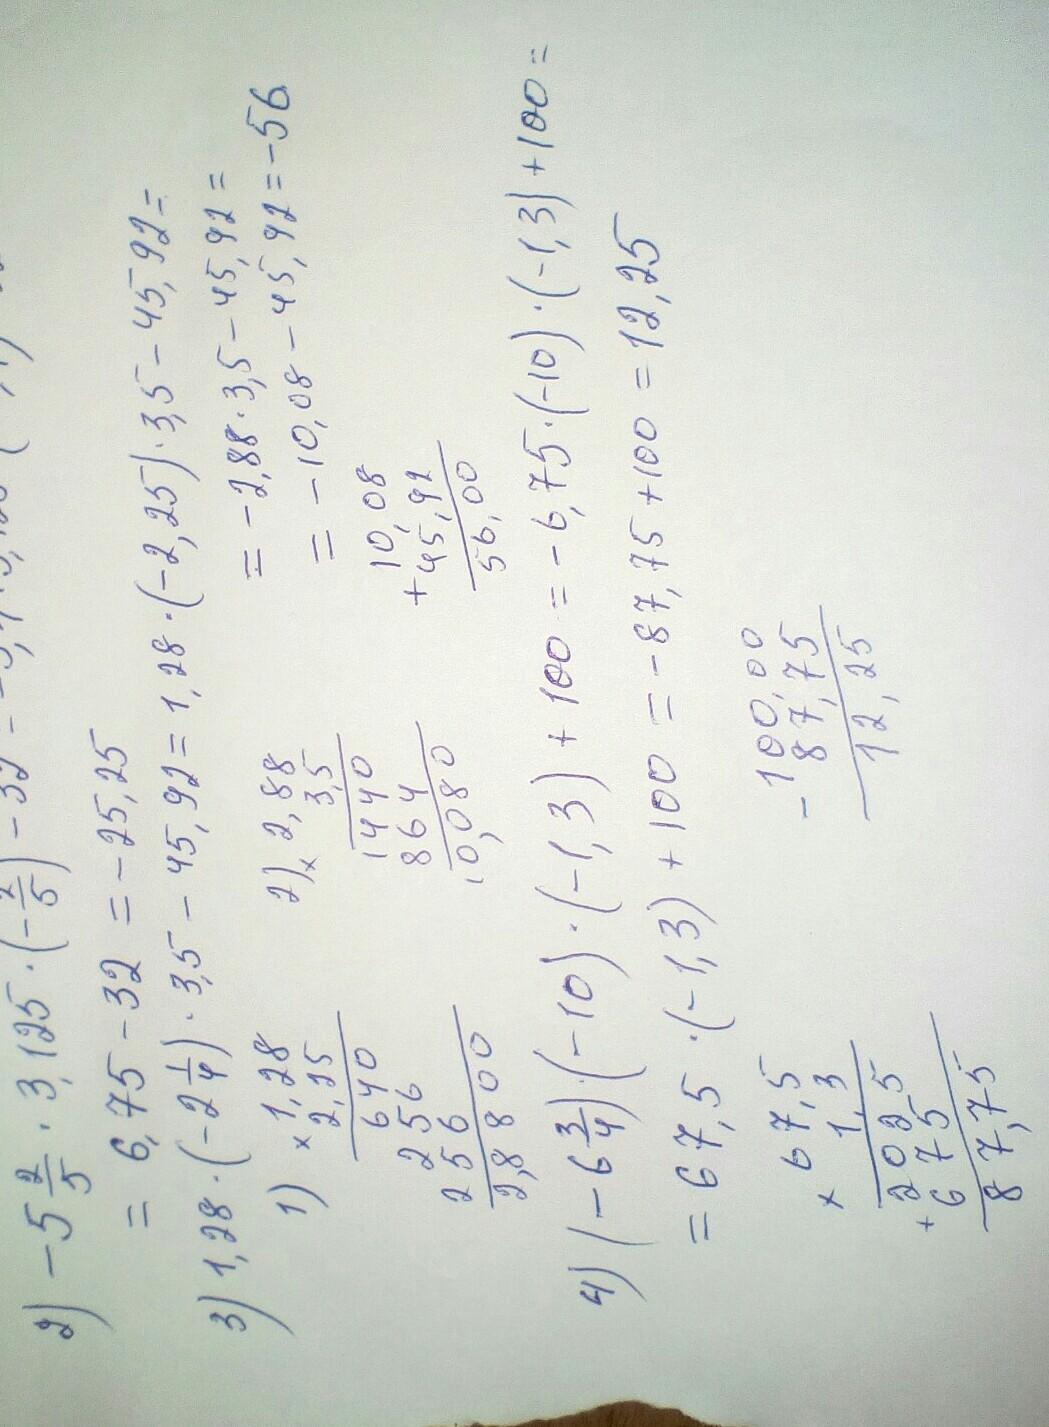 2) -5 2/5 · 3,125 · (-2/5) - 32 =
= 6,75 - 32 = -25,25
3) 1,28 · (-2 1/4) · 3,5 - 45,92 = 1,28 · (-2,25) · 3,5 - 45,92 =
= -2,88 · 3,5 - 45,92 =
= -10,08 - 45,92 = -56
1) × 1,28
2,25
640
256
256
2,8800
2) × 2,88
3,5
1440
864
10,080
+ 10,08
45,92
56,00
4) (-6 3/4) · (-10) · (-1,3) + 100 = -6,75 · (-10) · (-1,3) + 100 =
= 67,5 · (-1,3) + 100 = -87,75 + 100 = 12,25
× 67,5
1,3
+ 2025
675
87,75
- 100,00
87,75
12,25